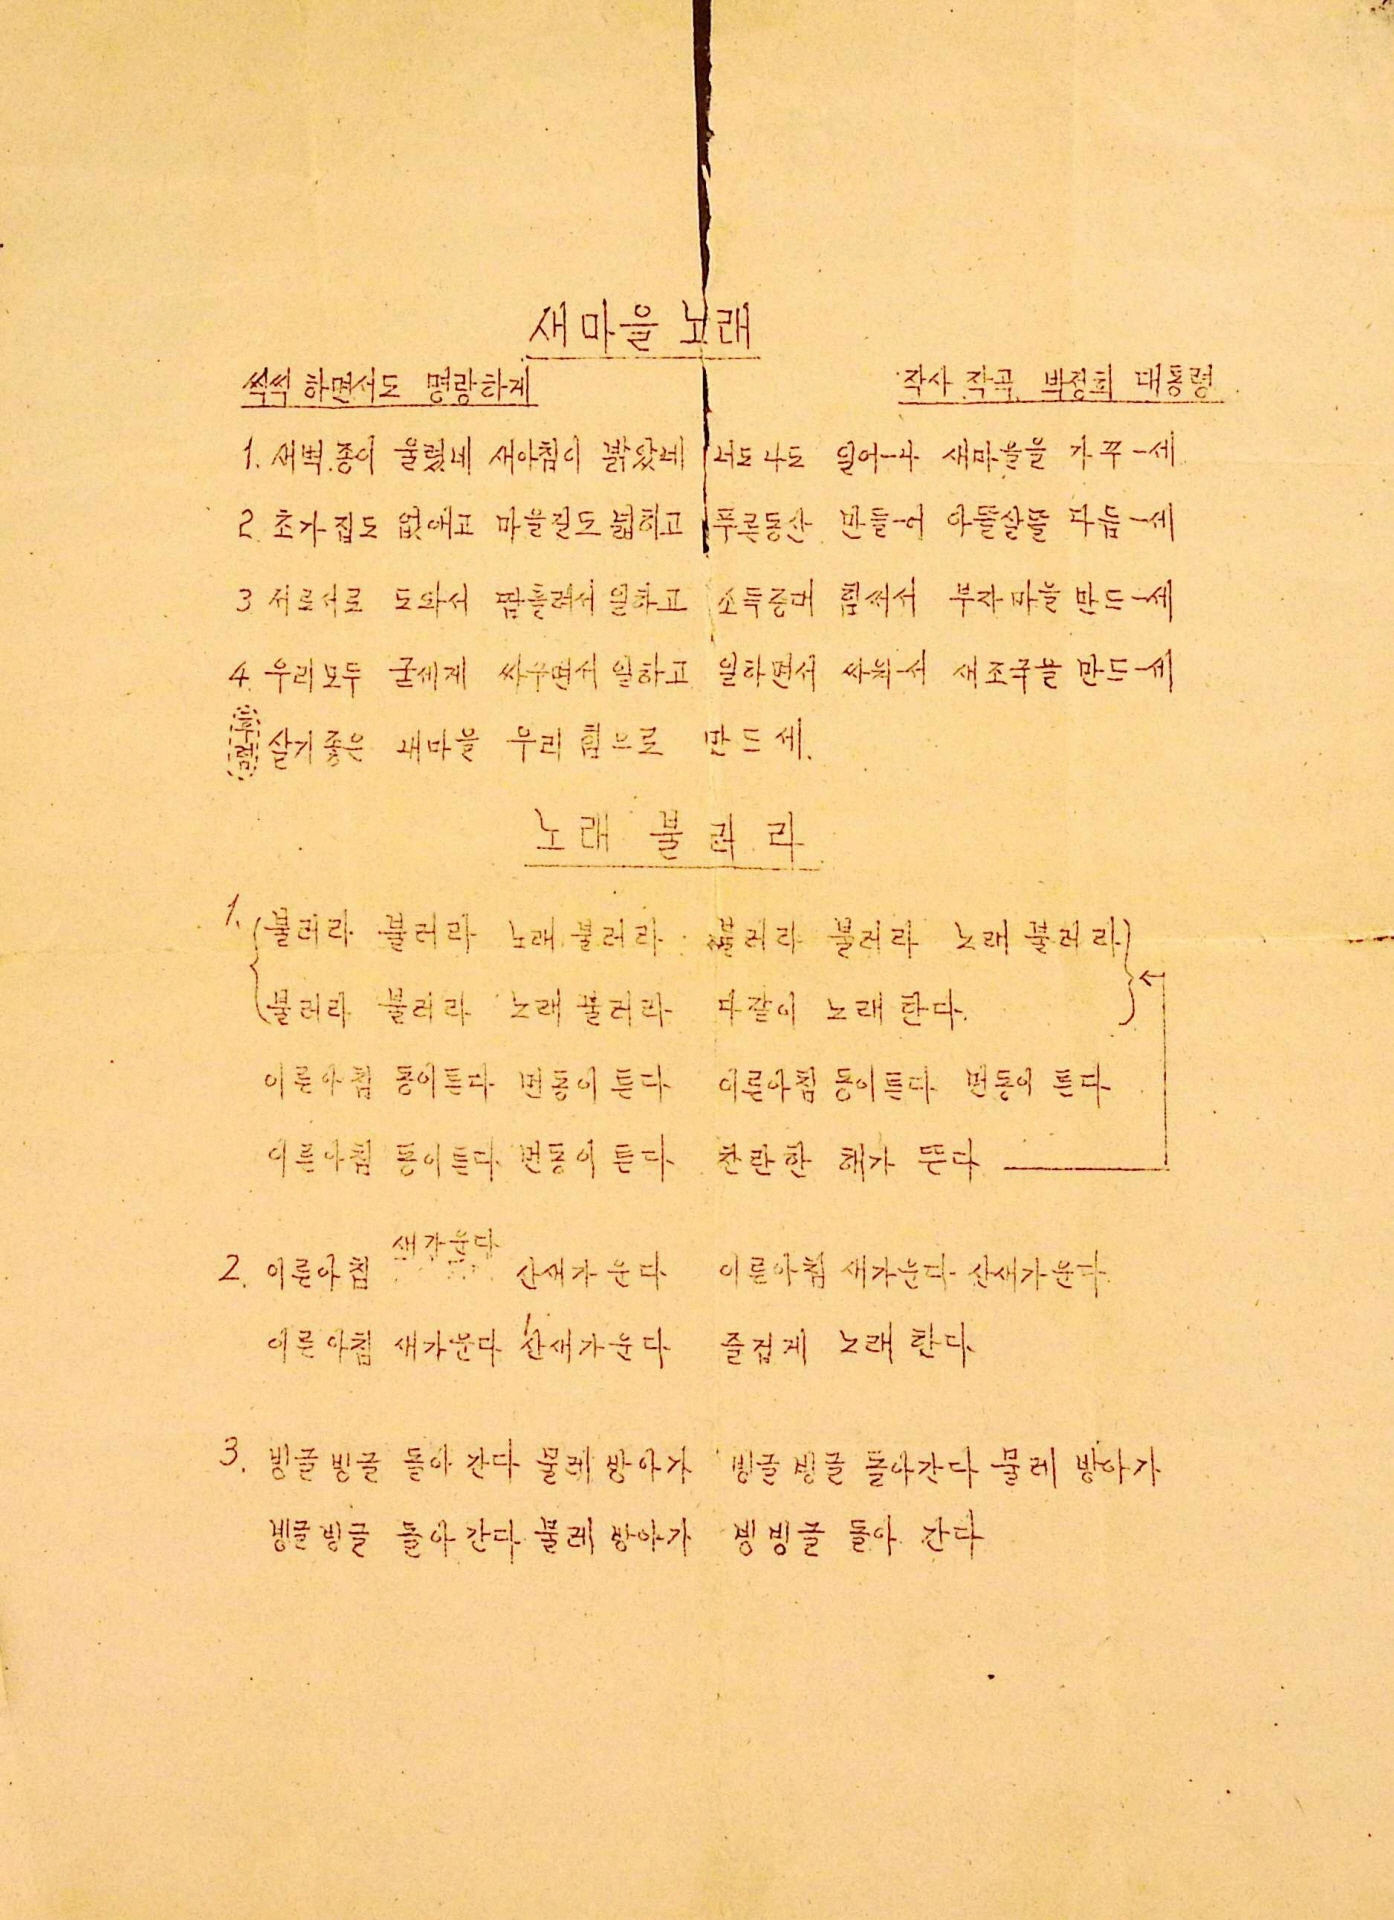 새마을 노래
씩씩 하면서도 명랑하게
작사 작곡 박정희 대통령
1. 새벽종이 울렸네 새아침이 밝았네 너도나도 일어-나 새마을을 가꾸-세
2 초가집도 없애고 마을길도 넓히고 푸른동산 만들-어 아뜰살뜰 다듬-세
3 서로서로 도와서 땀흘려서 일하고 소득증대 힘써서 부자마을 만드-세
4. 우리모두 굳세게 싸우면서 일하고 일하면서 싸워-서 새조국을 만드-세
후렴 살기좋은 새마을 우리힘으로 만드세.
노래 불러라
1. 불러라 불러라 노래 불러라 불러라 불러라 노래 불러라
불러라 불러라 노래 불러라 다같이 노래 한다.
이른아침 동이튼다 먼동이 튼다 이른아침 동이튼다 먼동이 튼다
이른아침 동이튼다 먼동이 튼다 찬란한 해가 뜬다
2. 이른아침 새가운다 산새가 운다 이른아침 새가운다 산새가운다
이른아침 새가운다 산새가운다 즐겁게 노래 한다
3. 빙글빙글 돌아 간다 물레 방아가 빙글빙글 돌아간다 물레 방아가
빙글빙글 돌아 간다 물레 방아가 빙빙글 돌아 간다